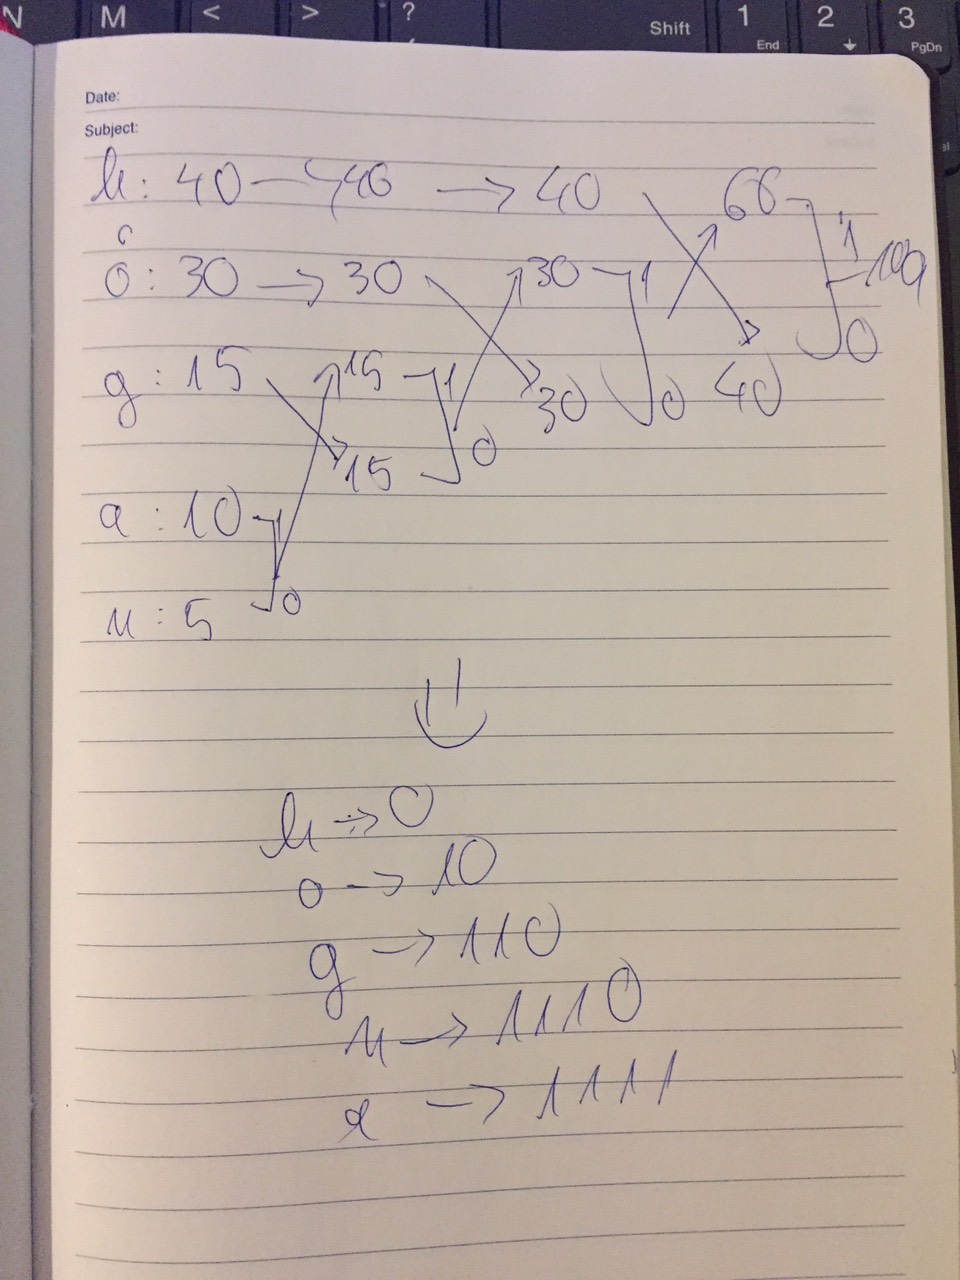 N M < > ? Shift 1 End 2 3 PgDn
Date:
Subject:
h: 40 → 40 → 40 60 1 100
o: 30 → 30 30 1 0
g: 15 15 1 30 0 40
15 0
a: 10 1
u: 5 0
h → 0
o → 10
g → 110
u → 1110
a → 1111